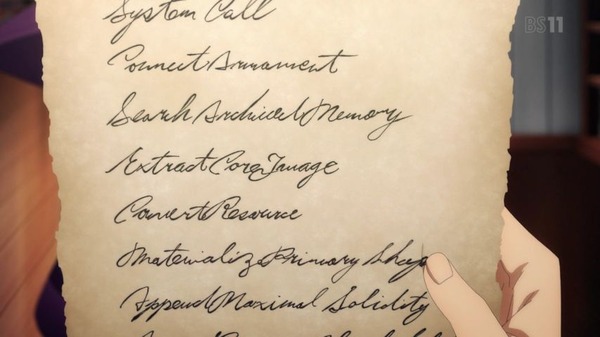 BS11
System Call
Connect Armament
Search Archived Memory
Extract Core Image
Convert Resource
Materialize Primary Shap
Append Maximal Solidity